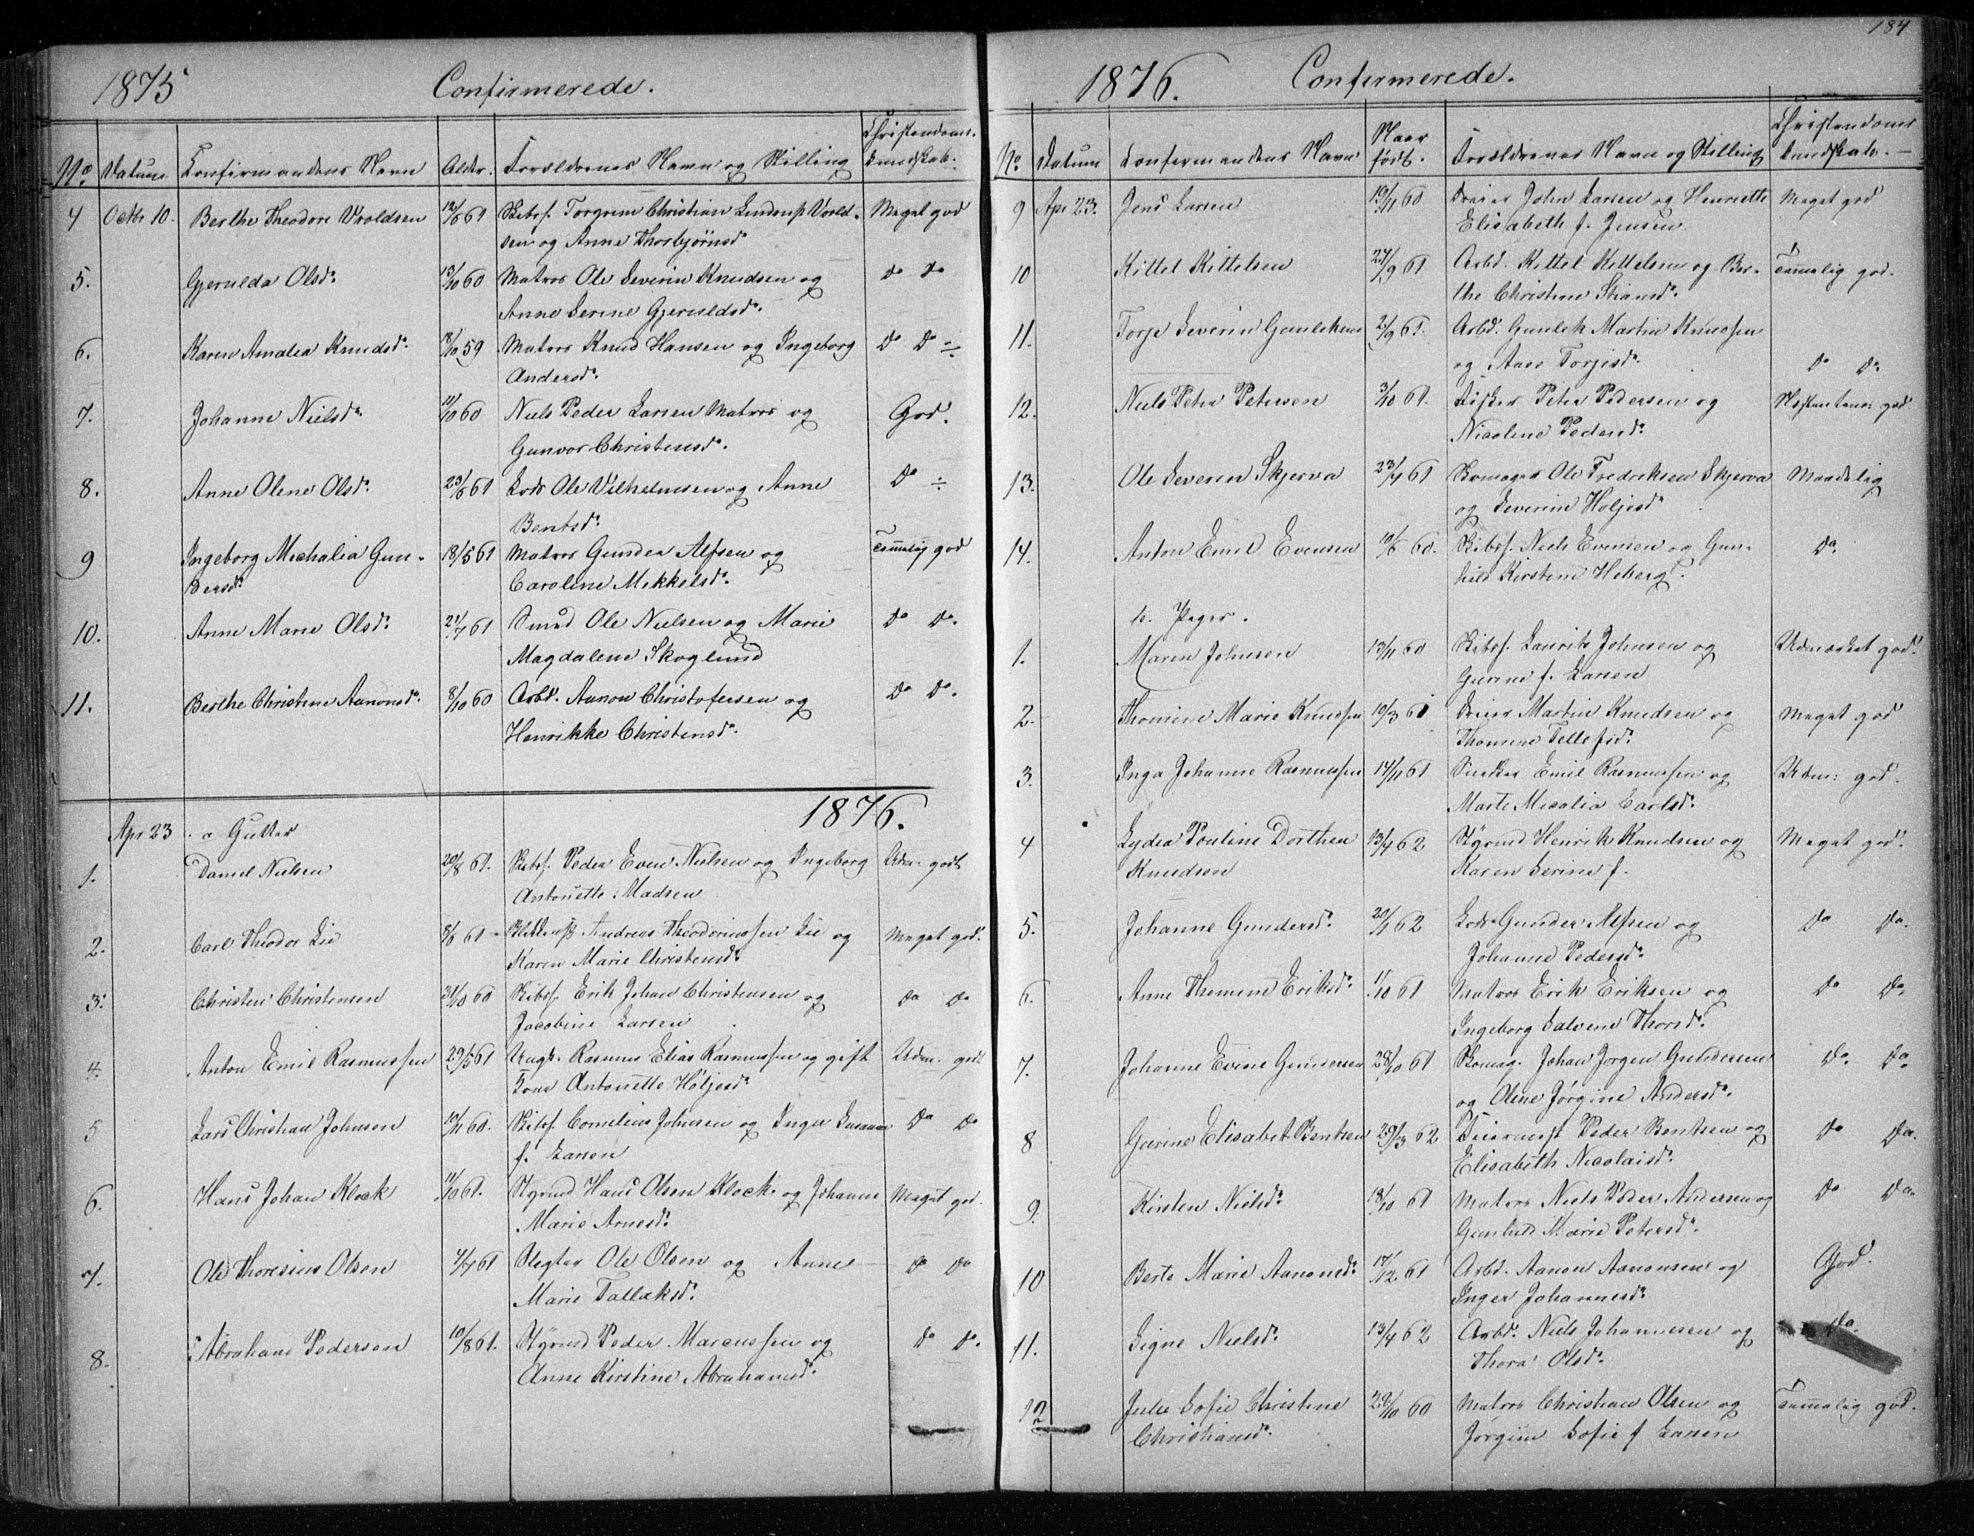 184
1875 Confirmerede.
No Datum Confirmandens Navn Alder. Forældrenes Navn og Stilling Christendoms-
kundskab.
4 Octbr 10. Berthe Theodore Vroldsen 12/6 61 Skibsf. Torgrem Christian Lindrup Vrold- Meget god
sen og Anne Thorbjørnsd.
5. Gjerulda Olsd. 13/10 60 Matros Ole Severin Knudsen og Do Do
Anne Serine Gjeruldsd.
6. Karen Amalia Knudsd. 10 59 Matros Knud Hansen og Ingeborg Do Do ÷
Andersd.
7. Johanne Nielsd. 11/10 60 Niels Peder Larsen Matros og God.
Gunvor Christensd.
8. Anne Olene Olsd. 23/6 61 Lods Ole Vilhelmsen og Anne Do ÷
Bentsd.
9 Ingeborg Michalia Gun- 18/5 61 Matros Gunder Alfsen og Temmelig god
dersd. Caroline Mikkelsd.
10. Anne Marie Olsd. 21/7 61 Smed Ole Nielsen og Marie Do Do.
Magdalene Skoglund
11. Berthe Christine Aanonsd. 8/10 60 Arbd. Aanon Christofersen og Do Do.
Henrikke Christensd.
1876.
Apr 23 a Gutter
1. Daniel Nielsen 20/8 61. Skibsf. Peder Even Nielsen og Ingeborg Udm. godt
Antonette Madsen
2. Carl Theodor Lie 8/6 61 Andreas Theodoriussen Lie og Meget god.
Karen Marie Christensd.
3. Christen Christensen 31/10 60 Skibsf. Erik Johan Christensen og Do Do
Jacobine Larsen
4. Anton Emil Rasmussen 29/5 61 Ungk. Rasmus Elias Rasmussen og gift Udm. god.
Kone Antonette Høljesd.
5 Lars Christian Johnsen 10/11 60. Skibsf. Cornelius Johnsen og Inger Susanne Do Do
f. Larsen
6. Hans Johan Klock 11/10 61. Styrmd Hans Olsen Klock og Johanne Meget god.
Marie Arnesd.
7. Ole Thoresius Olsen 4/7 61 Ole Olsen og Anne Do Do
Marie Tallaksd.
8. Abraham Pedersen 10/8 61. Styrmd Peder Marcussen og Do Do.
Anne Kirstine Abrahamsd.
1876. Confirmerede.
No. Datum Confirmandens Navn Naar
født. Forældrenes Navn og Stilling Christendoms
kundskab.
9 Apr 23. Jens Larsen 19/11 60 Dreier John Larsen og Henriette Meget god
Elisabeth f. Jensen.
10 Kittel Kittelsen 27/9 61 Arbd. Kittel Kittelsen og Ber- Temmelig god.
the Christine Stiansd.
11. Torje Severin Gunleksen 2/9 61. Arbd. Gunlek Martin Knudsen
og Aase Torjisd. Do Do
12. Niels Peter Petersen 3/10 61. Fisker Peter Pedersen og Næsten tem: god
Nicoline Pedersd.
13. Ole Severin Skjerva 23/4 61 Bomager Ole Fredriksen Skjerva Maadelig
og Severine Høljesd.
14. Anton Emil Evensen 10/6 60. Skibsf. Niels Evensen og Gun- Do.
hild Kirstine Heberg.
b. Piger.
1. Maren Johnsen 13/11 60 Skibsf. Laurits Johnsen og Udmærket god.
Gurine f. Larsen
2. Thomine Marie Knudsen 10/3 61 Dreier Martin Knudsen og Meget god
Thomine Tellefsd.
3. Inga Johanne Rasmussen 14/11 61 Emil Rasmussen og Udm: god.
Marte Micalia Carlsd.
4 Lydia Pouline Dorthea 13/4 62 Styrmd Henrik Knudsen og Meget god.
Knudsen Karen Serine f.
5. Johanne Gundersd. 20/1 62 Lods Gunder Alfsen og Do Do.
Johanne Pedersd.
6. Anne Thomine Eriksd. 1/10 61 Matros Erik Eriksen og Do Do.
Ingeborg Salvene Thorsd.
7. Johanne Evine Gundersen 28/10 61 Bomag. Johan Jørgen Gundersen Do. Do.
og Oline Jørgine Andersd.
8 Gurine Elisabet Bentsen 29/3 62 Peder Bentsen og Do Do.
Elisabeth Nicolaisd.
9. Kirsten Nielsd. 18/10 61 Matros Niels Peder Andersen og Do Do.
Gunhild Marie Petersd.
10 Berte Marie Aanonsd. 17/12 61 Arbd. Aanon Aanonsen og God.
Inger Johannesd.
11. Signe Nielsd. 13/4 62 Arbd. Niels Johannesen og Do.
Thora Olsd.
12 Julie Sofie Christine 29/10 60 Matros Christian Olsen og Temmelig god.
Christiansd. Jørgine Sofie f Larsen